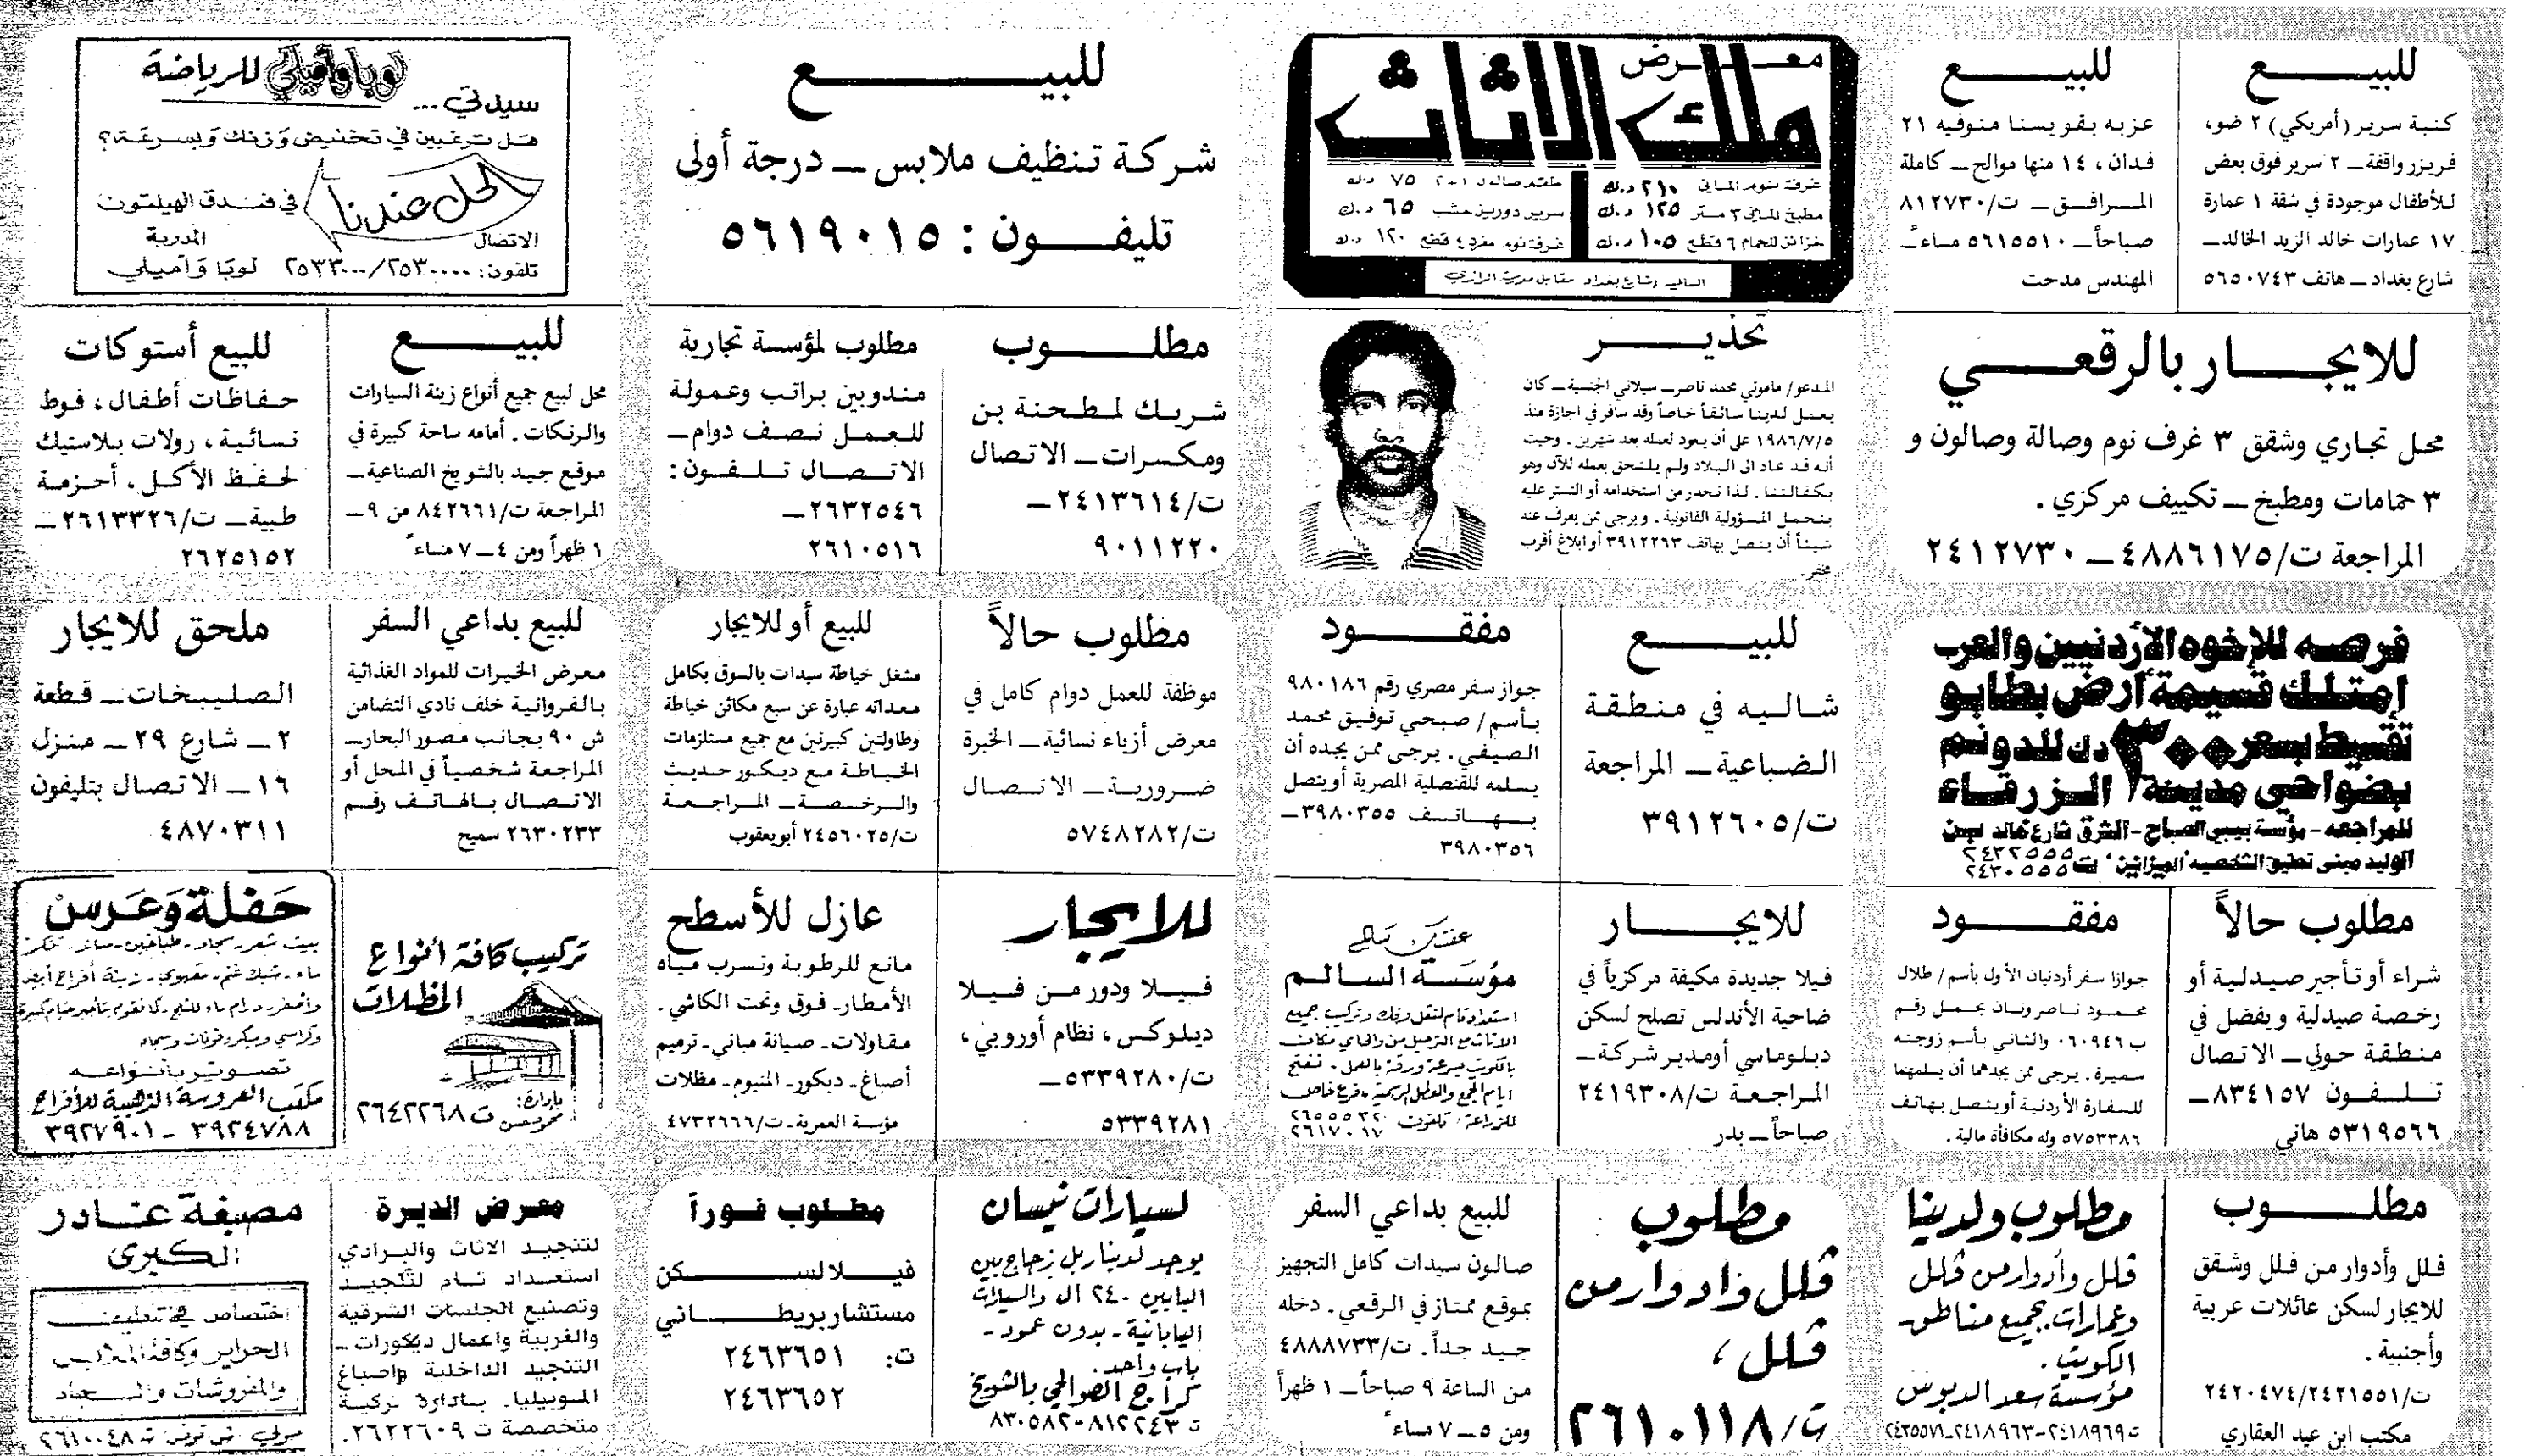 للبيع
كنبة سرير (أمريكي) ٢ ضو،
فريزر واقفة ــ ٢ سرير فوق بعض
للأطفال موجودة في شقة ١ عمارة
١٧ عمارات خالد الزيد الخالد ــ
شارع بغداد ــ هاتف ٥٦٥٠٧٤٣
للبيع
عزبه بقويسنا منوفيه ٢١
فدان، ١٤ منها موالح ــ كاملة
المرافق ــ ت/٨١٢٧٣٠
صباحاً ــ ٥٦١٥٥١٠ مساءً ــ
المهندس مدحت
معرض
ملك الاثاث
غرفة نوم الماني ٢١٠ د.ك
مطبخ الماني ٣ متر ١٢٥ د.ك
خزائن للحمام ٦ قطع ١٠٥ د.ك
طقم صالون ١+٢ ٧٥ د.ك
سرير دورين خشب ٦٥ د.ك
غرفة نوم مفرد ٤ قطع ١٢٠ د.ك
السالميه شارع بغداد مقابل مدرسة الرازي
للبيع
شركة تنظيف ملابس ــ درجة أولى
تليفون : ٥٦١٩٠١٥
لوبا وأميلي للرياضة
سيدتي ...
هل ترغبين في تخفيض وَزنك وَبسرعَة؟
الحل عندنا
في فندق الهيلتون
الاتصال
المدربة
تلفون: ٢٥٣٠٠٠٠/٢٥٣٣٠٠٠
لوبَا وَاميلي
للايجار بالرقعي
محل تجاري وشقق ٣ غرف نوم وصالة وصالون و
٣ حمامات ومطبخ ــ تكييف مركزي .
المراجعة ت/٤٨٨٦١٧٥ ــ ٢٤١٢٧٣٠
تحذير
المدعو/ ماموني محمد ناصر ــ سيلاني الجنسية ــ كان
يعمل لدينا سائقاً خاصاً وقد سافر في اجازة منذ
١٩٨٦/٧/٥ على أن يعود لعمله بعد شهرين . وحيث
أنه قد عاد الى البلاد ولم يلتحق بعمله للآن وهو
بكفالتنا . لذا نحذر من استخدامه أو التستر عليه
يتحمل المسؤولية القانونية . ويرجى ممن يعرف عنه
شيئاً أن يتصل بهاتف ٣٩١٢٢٦٣ أو ابلاغ أقرب
مخفر .
مطلوب
شريك لمطحنة بن
ومكسرات ــ الاتصال
ت/٢٤١٣٦١٤ ــ
٩٠١١٢٢٠
مطلوب لمؤسسة تجارية
مندوبين براتب وعمولة
للعمل نصف دوام ــ
الاتصال تلفون :
٢٦٣٢٥٤٦ ــ
٢٦١٠٥١٦
للبيع
محل لبيع جميع أنواع زينة السيارات
والرنكات . أمامه ساحة كبيرة في
موقع جيد بالشويخ الصناعية ــ
المراجعة ت/٨٤٢٦٦١ من ٩ ــ
١ ظهراً ومن ٤ ــ ٧ مساءً
للبيع أستوكات
حفاظات أطفال، فوط
نسائية، رولات بلاستيك
لحفظ الأكل، أحزمة
طبية ــ ت/٢٦١٣٣٢٦ ــ
٢٦٢٥١٥٢
فرصه للإخوه الأردنيين والعرب
إمتلك قسيمة أرض بطابو
تقسيط بسعر ٣٠٠ دك للدونم
بضواحي مدينة الزرقاء
للمراجعه - مؤسسة بيبي الصباح - الشرق شارع خالد ابن
الوليد مبنى تطبيق الشخصيه "الميزانين" ت ٢٤٣٢٥٥٥
٢٤٣٠٥٥٥
للبيع
شاليه في منطقة
الضباعية ــ المراجعة
ت/٣٩١٢٦٠٥
مفقود
جواز سفر مصري رقم ٩٨٠١٨٦
بأسم/ صبحي توفيق محمد
الصيفي . يرجى ممن يجده أن
يسلمه للقنصلية المصرية أو يتصل
بهاتف ٣٩٨٠٣٥٥ ــ
٣٩٨٠٣٥٦
مطلوب حالاً
موظفة للعمل دوام كامل في
معرض أزياء نسائية ــ الخبرة
ضرورية ــ الاتصال
ت/٥٧٤٨٢٨٢
للبيع أو للايجار
مشغل خياطة سيدات بالسوق بكامل
معداته عبارة عن سبع مكائن خياطة
وطاولتين كبيرتين مع جميع مستلزمات
الخياطة مع ديكور حديث
والرخصة ــ المراجعة
ت/٢٤٥٦٠٢٥ أبو يعقوب
للبيع بداعي السفر
معرض الخيرات للمواد الغذائية
بالفروانية خلف نادي التضامن
ش ٩٠ بجانب مصور البحار ــ
المراجعة شخصياً في المحل أو
الاتصال بالهاتف رقم
٢٦٣٠٢٣٣ سميح
ملحق للايجار
الصليبخات ــ قطعة
٢ ــ شارع ٢٩ ــ منزل
١٦ ــ الاتصال بتليفون
٤٨٧٠٣١١
مطلوب حالاً
شراء أو تأجير صيدلية أو
رخصة صيدلية ويفضل في
منطقة حولي ــ الاتصال
تلفون ٨٣٤١٥٧ ــ
٥٣١٩٥٦٦ هاني
مفقود
جوازا سفر أردنيان الأول بأسم/ طلال
محمود ناصر ونان يحمل رقم
ب ٠٦٠٩٤٦ والثاني بأسم زوجته
سميرة . يرجى ممن يجدهما أن يسلمهما
للسفارة الأردنية أو يتصل بهاتف
٥٧٥٣٣٨٦ وله مكافأة مالية .
للايجار
فيلا جديدة مكيفة مركزياً في
ضاحية الأندلس تصلح لسكن
دبلوماسي أو مدير شركة ــ
المراجعة ت/٢٤١٩٣٠٨
صباحاً ــ بدر
عفشك سالم
مؤسسة السالم
استعداد تام لنقل وفك وتركيب جميع
الاثاث مع التزميل من والى اي مكان
بالكويت بسرعة ورقة بالعمل . نفتح
ايام الجمع والعطل الرسمية . فرع خاص
للزراعة . تلفون ٢٦٥٥٥٣٢
٢٦١٧٠١٧
للايجار
فيلا ودور من فيلا
ديلوكس، نظام أوروبي،
ت/٥٣٣٩٢٨٠ ــ
٥٣٣٩٢٨١
عازل للأسطح
مانع للرطوبة وتسرب مياه
الأمطار - فوق وتحت الكاشي .
مقاولات - صيانة مباني - ترميم
أصباغ - ديكور - المنيوم - مظلات
مؤسسة العمرية - ت/٤٧٣٢٦٦٦
تركيب كافة أنواع
المظلات
بإدارة:
محمود حسن
ت ٢٦٤٢٢٦٨
حَفلة وَعَرس
بيت شعر - سجاد - طباخين -
ماء - شبك غنم - مقهوي - زينة أفراح أبيض
وكراسي وميكروفونات وسجاد
تصوير بأنواعه
مكتب العروسة الذهبية للأفراح
٣٩٢٤٧٨٨ - ٣٩٢٧٩٠١
مطلوب
فلل وأدوار من فلل وشقق
للايجار لسكن عائلات عربية
وأجنبية .
ت/٢٤٢٠٤٧٤/٢٤٢١٥٥١
مكتب ابن عيد العقاري
مطلوب ولدينا
فلل وأدوار من فلل
وعمارات بجميع مناطق
الكويت .
مؤسسة سعد الدبوس
ت ٢٤١٨٩٦٩-٢٤١٨٩٦٣-٢٤٣٥٥٧١
مطلوب
فلل وادوار من
فلل ،
ت/٢٦١٠١١٨
للبيع بداعي السفر
صالون سيدات كامل التجهيز
بموقع ممتاز في الرقعي . دخله
جيد جداً. ت/٤٨٨٨٧٣٣
من الساعة ٩ صباحاً ــ ١ ظهراً
ومن ٥ ــ ٧ مساءً
لسيارات نيسان
يوجد لدينا ربل زجاج بين
البابين ٢٤٠ ال والسيارات
اليابانية - بدون عمود -
باب واحد .
كراج الصوالحي بالشويخ
ت ٨١٢٢٤٣-٨٣٠٥٨٢
مطلوب فوراً
فيلا لسكن
مستشار بريطاني
ت: ٢٤٦٣٦٥١
٢٤٦٣٦٥٢
معرض الديرة
لتنجيد الاثاث والبرادي
استعداد تام لتنجيد
وتصنيع الجلسات الشرقية
والغربية واعمال ديكورات ــ
التنجيد الداخلية واصباغ
الموبيليا. بادارة تركية
متخصصة ت ٢٦٢٢٦٠٩.
مصبغة عنادر
الكبرى
اختصاص في تنظيف
الحراير وكافة الملابس
والمفروشات والسجاد
حولي ش تونس ت ٢٦١٠٠٤٨